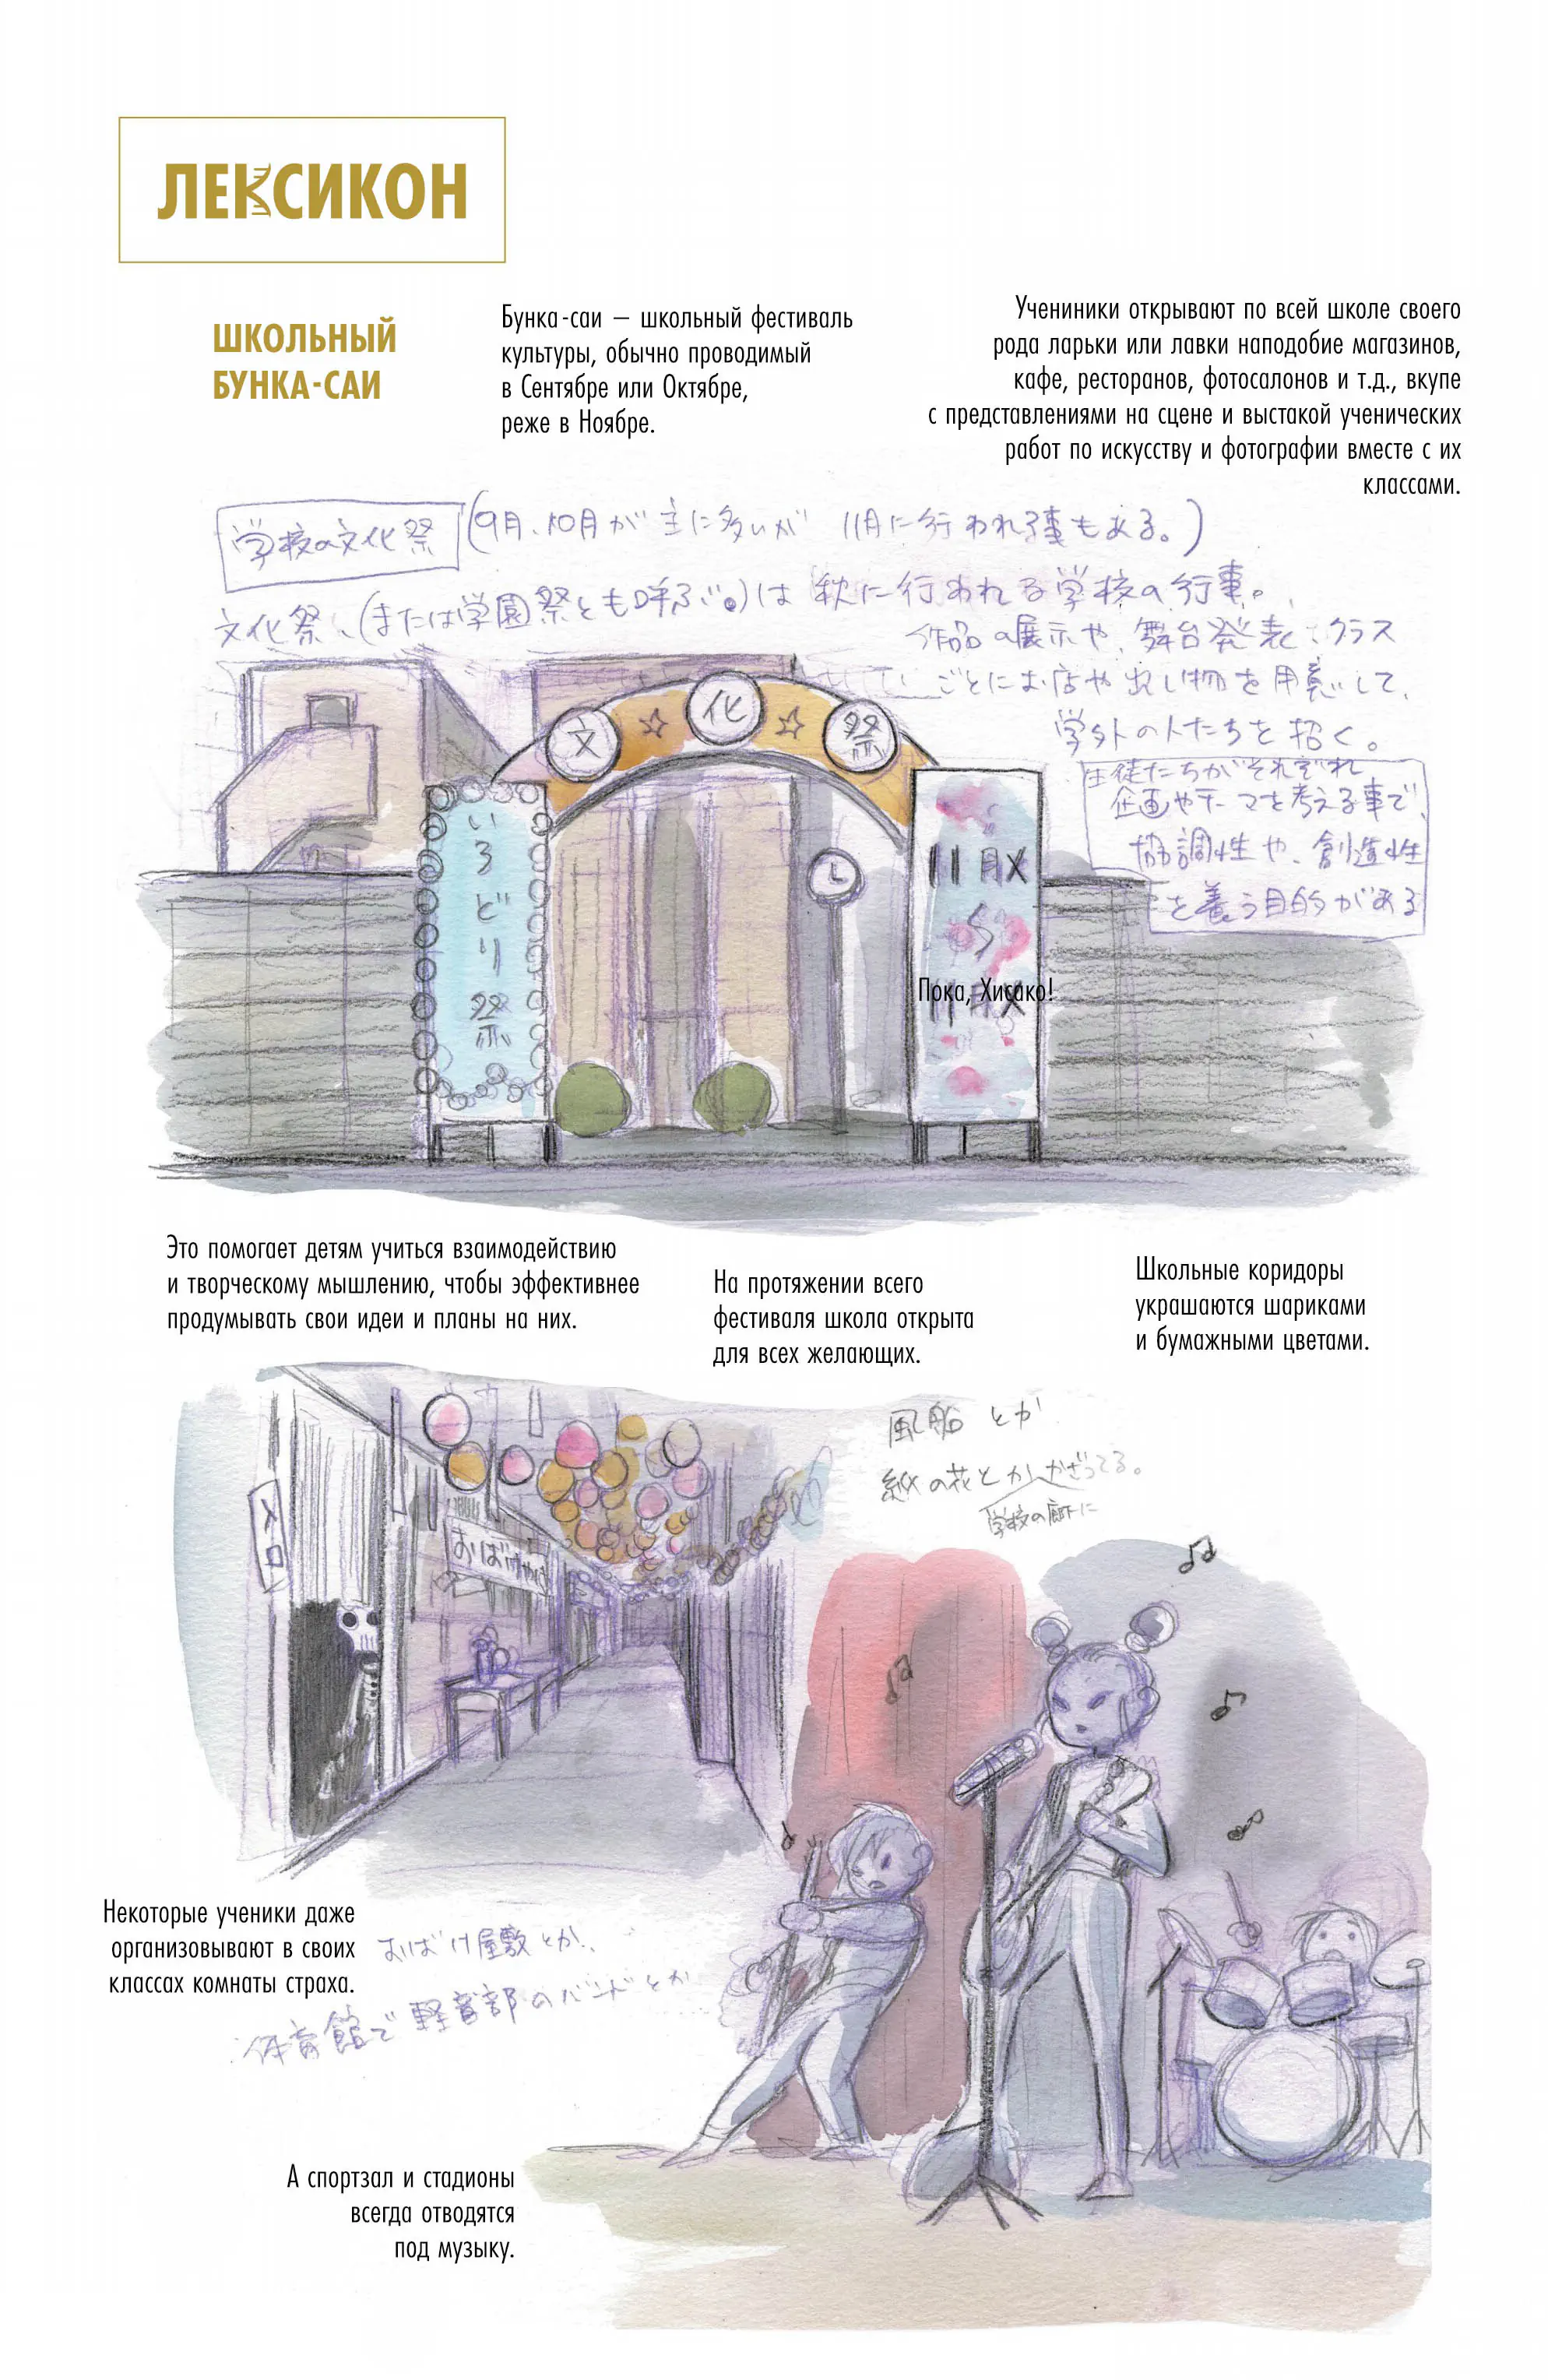 ЛЕКСИКОН
ШКОЛЬНЫЙ
БУНКА-САИ
Бунка-саи – школьный фестиваль
культуры, обычно проводимый
в Сентябре или Октябре,
реже в Ноябре.
Учениники открывают по всей школе своего
рода ларьки или лавки наподобие магазинов,
кафе, ресторанов, фотосалонов и т.д., вкупе
с представлениями на сцене и выстакой ученических
работ по искусству и фотографии вместе с их
классами.
学校の文化祭 (9月、10月が主に多いが 11月に行われる事もある。)
文化祭、(または学園祭とも呼ぶ。)は 秋に行われる学校の行事。
作品の展示や、舞台発表、クラス
ごとにお店や出し物を用意して、
学外の人たちを招く。
生徒たちがそれぞれ
企画やテーマを考える事で、
協調性や、創造性
を養う目的がある
文☆化☆祭
いろどり祭
11月X
11月X
Пока, Хисако!
Это помогает детям учиться взаимодействию
и творческому мышлению, чтобы эффективнее
продумывать свои идеи и планы на них.
На протяжении всего
фестиваля школа открыта
для всех желающих.
Школьные коридоры
украшаются шариками
и бумажными цветами.
風船とか
紙の花とかかざってる。
学校の廊下に
入口
おばけやしき
Некоторые ученики даже
организовывают в своих
классах комнаты страха.
おばけ屋敷とか、
体育館で軽音部のバンドとか
А спортзал и стадионы
всегда отводятся
под музыку.